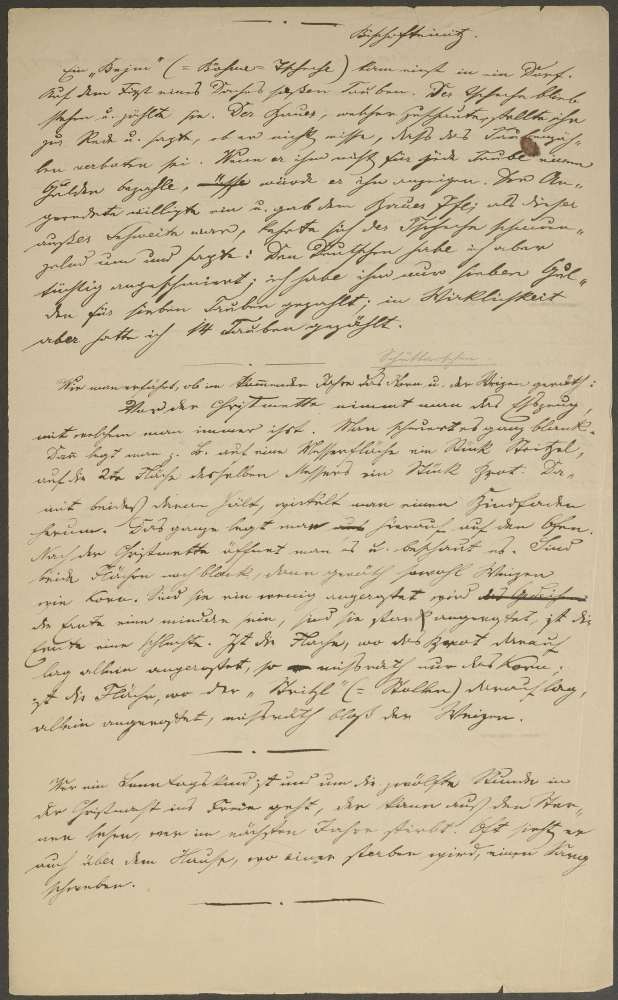 Bischofteinitz.
Ein „Bejm" (= Böhme = Tscheche) kam einst in ein Dorf.
Auf dem First eines Daches saßen Tauben. Der Tscheche blieb
stehen u. zählte sie. Der Bauer, welcher zuschaute, stellte ihn
zur Rede u. sagte, ob er nicht wisse, daß das Taubenzäh-
len verboten sei. Wenn er ihm nicht für jede Taube einen
Gulden bezahle, würde er ihn anzeigen. Der An-
geredete willigte ein u. gab dem Bauer 7 fl; als dieser
außer Sehweite war, kehrte sich der Tscheche schmun-
zelnd um und sagte: Den Deutschen habe ich aber
tüchtig angeschmiert; ich habe ihm nur sieben Gul-
den für sieben Tauben gezahlt; in Wirklichkeit
aber hatte ich 14 Tauben gezählt.
Wie man erfährt, ob im kommenden Jahre das Korn u. der Weizen geräth:
Vor der Christmette nimmt man das Eßzeug,
mit welchem man immer ißt. Man scheuert es ganz blank.
Dann legt man z. B. auf eine Messerfläche ein Stück Stritzel,
auf die 2te Fläche desselben Messers ein Stück Brot. Da-
mit beides daran hält, wickelt man einen Bindfaden
herum. Das ganze legt man hierauf auf den Ofen.
Nach der Christmette öffnet man es u. beschaut es. Sind
beide Flächen noch blank, dann geräth sowohl Weizen
wie Korn. Sind sie ein wenig angerostet, wird
die Ernte eine mindere sein, sind sie stark angerostet, ist die
Ernte eine schlechte. Ist die Fläche, wo das Brot darauf
lag allein angerostet, so mißräth nur das Korn;
ist die Fläche, wo der „Stritzl" (= Stollen) darauf lag,
allein angerostet, mißräth bloß der Weizen.
Wer ein Sonntagskind ist und um die zwölfte Stunde in
der Christnacht ins Freie geht, der kann aus den Ster-
nen sehen, wer im nächsten Jahre stirbt. Oft sieht er
auch über dem Hause, wo einer sterben wird, einen Sarg
schweben.